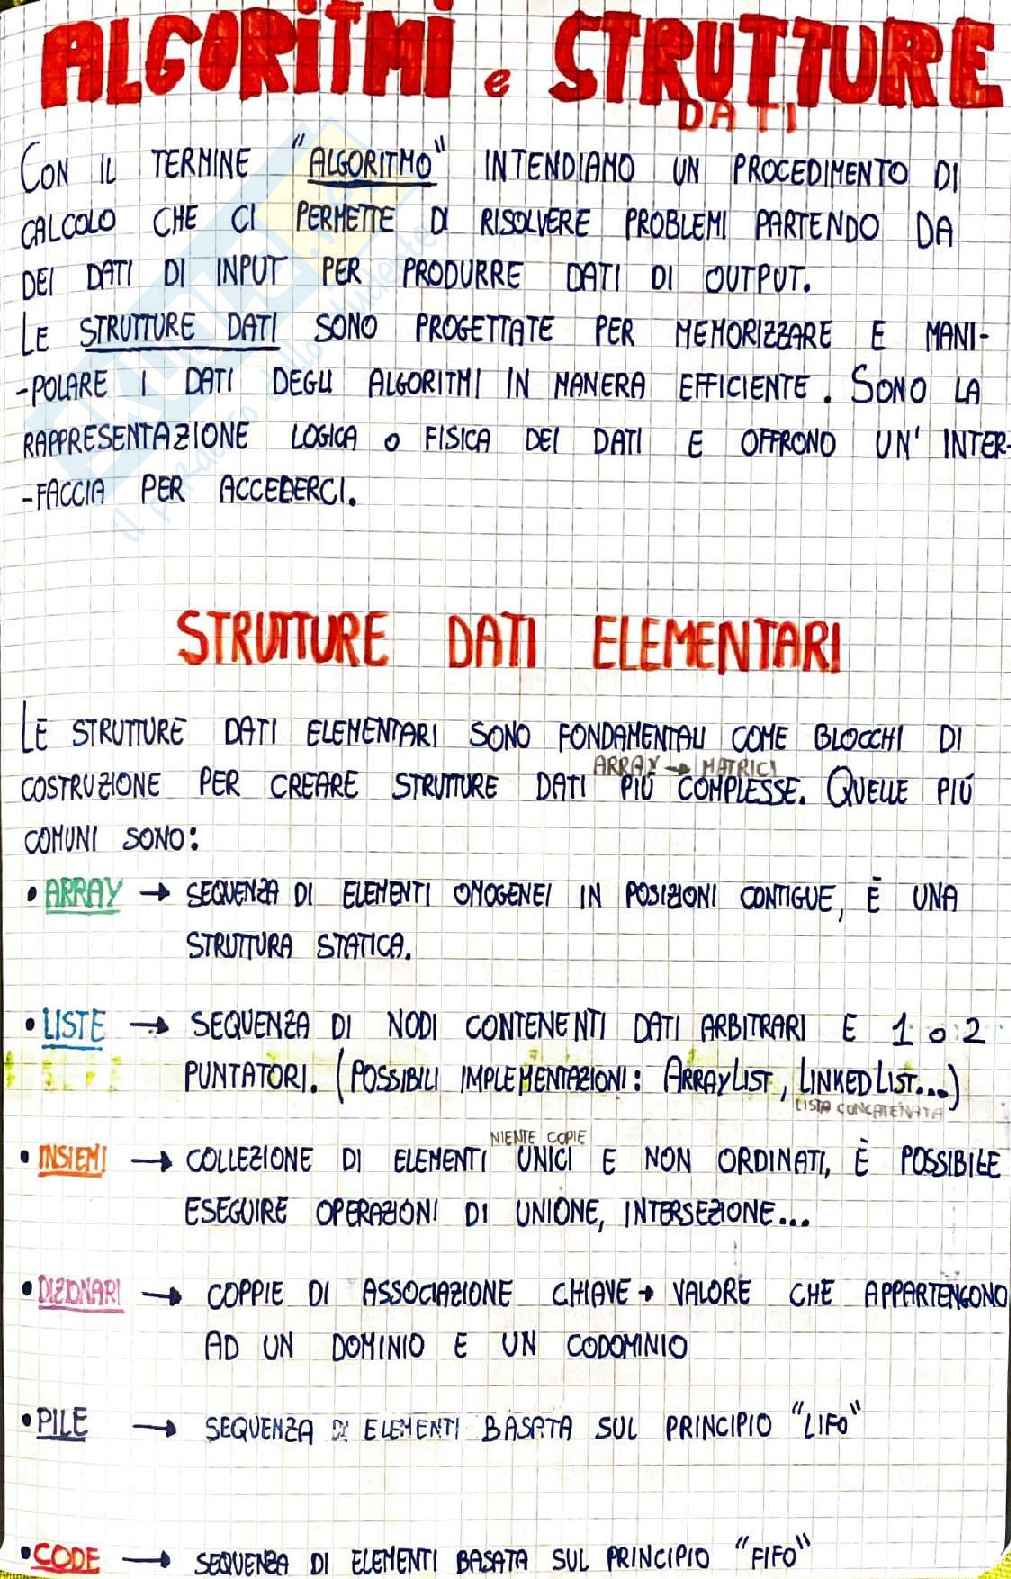 ALGORITMI e STRUTTURE
DATI
CON IL TERMINE "ALGORITMO" INTENDIAMO UN PROCEDIMENTO DI
CALCOLO CHE CI PERMETTE DI RISOLVERE PROBLEMI PARTENDO DA
DEI DATI DI INPUT PER PRODURRE DATI DI OUTPUT.
LE STRUTTURE DATI SONO PROGETTATE PER MEMORIZZARE E MANI-
-POLARE I DATI DEGLI ALGORITMI IN MANERA EFFICIENTE. SONO LA
RAPPRESENTAZIONE LOGICA O FISICA DEI DATI E OFFRONO UN' INTER-
-FACCIA PER ACCEDERCI.
STRUTTURE DATI ELEMENTARI
LE STRUTTURE DATI ELEMENTARI SONO FONDAMENTALI COME BLOCCHI DI
ARRAY → MATRICI
COSTRUZIONE PER CREARE STRUTTURE DATI PIÚ COMPLESSE. QUELLE PIÚ
COMUNI SONO:
• ARRAY → SEQUENZA DI ELEMENTI OMOGENEI IN POSIZIONI CONTIGUE, È UNA
STRUTTURA STATICA.
• LISTE → SEQUENZA DI NODI CONTENENTI DATI ARBITRARI E 1 o 2
PUNTATORI. (POSSIBILI IMPLEMENTAZIONI: ARRAYLIST, LINKED LIST...)
LISTA CONCATENATA
NIENTE COPIE
• INSIEMI → COLLEZIONE DI ELEMENTI UNICI E NON ORDINATI, È POSSIBILE
ESEGUIRE OPERAZIONI DI UNIONE, INTERSEZIONE...
• DIZIONARI → COPPIE DI ASSOCIAZIONE CHIAVE → VALORE CHE APPARTENGONO
AD UN DOMINIO E UN CODOMINIO
• PILE → SEQUENZA DI ELEMENTI BASATA SUL PRINCIPIO "LIFO"
• CODE → SEQUENZA DI ELEMENTI BASATA SUL PRINCIPIO "FIFO"